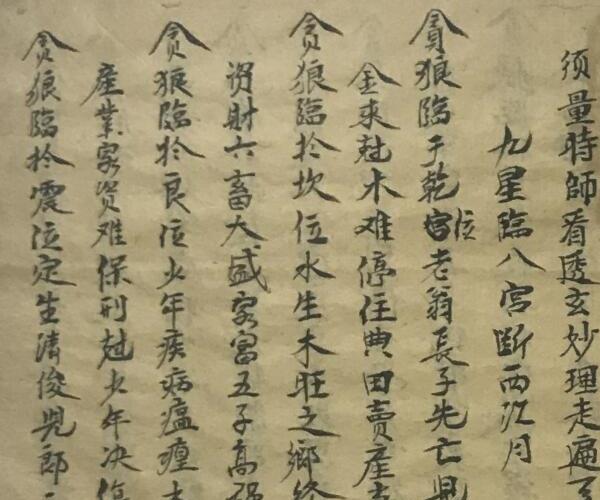 须量時師看透玄妙理走遍
九星臨八宫断西江月
貪狼臨于乾宫位老翁長子先亡
金来尅木难停住典田賣産
貪狼臨於坎位水生木旺之鄉
資財六畜大盛家富五子高
貪狼臨於艮位少年疾病瘟𤶊
產業家資难保刑尅少年决傷
貪狼臨於震位定生清俊児郎